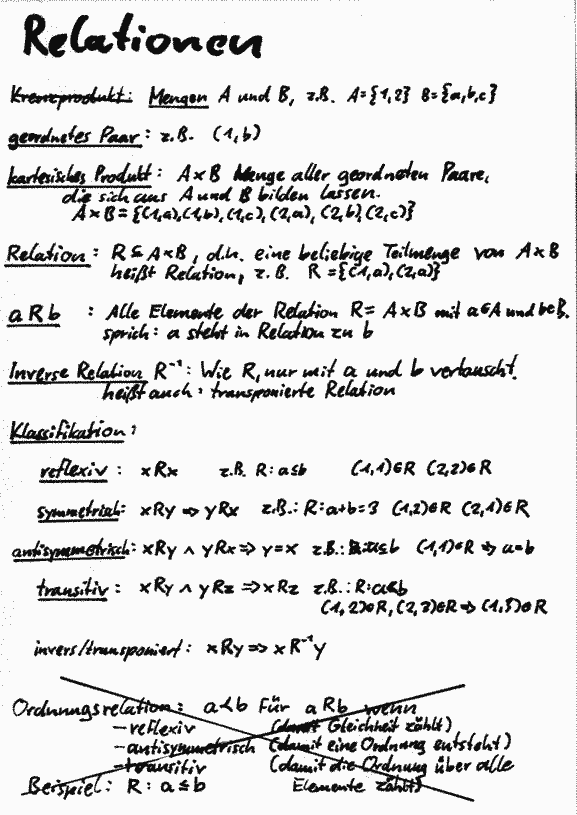 Relationen
Kreuzprodukt: Mengen A und B, z.B. A={1,2} B={a,b,c}
geordnetes Paar: z.B. (1,b)
kartesisches Produkt: A×B Menge aller geordneten Paare,
die sich aus A und B bilden lassen.
A×B = {(1,a),(1,b),(1,c),(2,a),(2,b),(2,c)}
Relation: R⊆A×B, d.h. eine beliebige Teilmenge von A×B
heißt Relation, z.B. R={(1,a),(2,a)}
aRb : Alle Elemente der Relation R= A×B mit a∈A und b∈B.
sprich: a steht in Relation zu b
Inverse Relation R⁻¹: Wie R, nur mit a und b vertauscht.
heißt auch: transponierte Relation
Klassifikation:
reflexiv : xRx z.B. R: a≤b (1,1)∈R (2,2)∈R
symmetrisch: xRy ⇒ yRx z.B.: R: a+b=3 (1,2)∈R (2,1)∈R
antisymmetrisch: xRy ∧ yRx ⇒ y=x z.B.: R: a≤b (1,1)∈R ⇒ a=b
transitiv : xRy ∧ yRz ⇒ xRz z.B.: R: a≤b
(1,2)∈R, (2,3)∈R ⇒ (1,3)∈R
invers/transponiert: xRy ⇒ xR⁻¹y
Ordnungsrelation: a≺b für aRb wenn
–reflexiv (damit Gleichheit zählt)
–antisymmetrisch (damit eine Ordnung entsteht)
–transitiv (damit die Ordnung über alle
Beispiel: R: a≤b Elemente zählt)